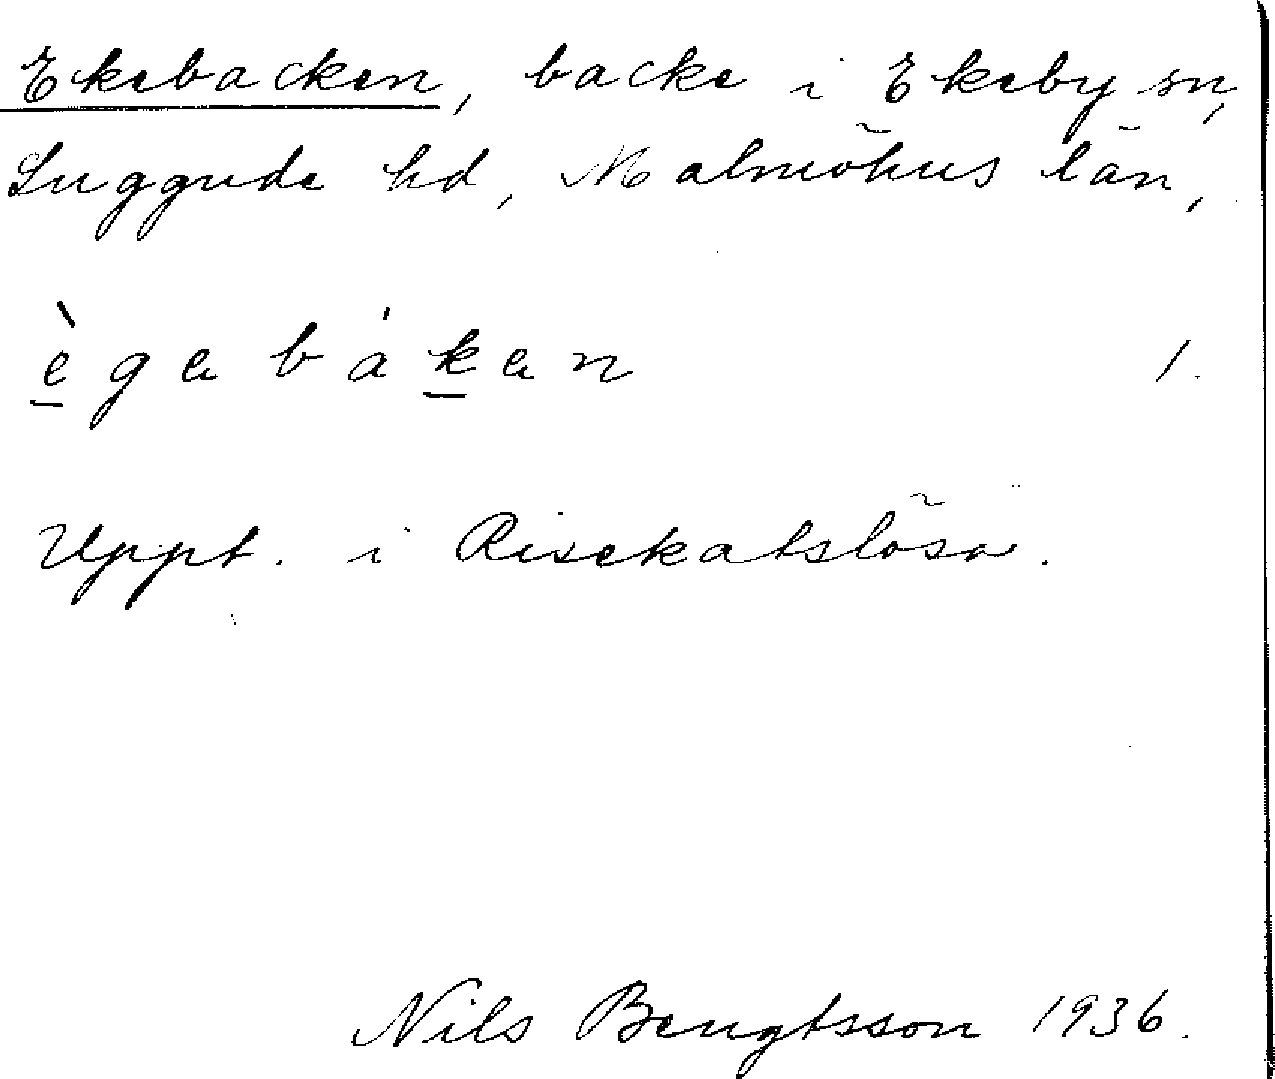 Ekebacken, backe i Ekeby sn,
Luggude hd, Malmöhus län,
è̱gabáḵan 1.
Uppt. i Risekatslösa.
Nils Bengtsson 1936.